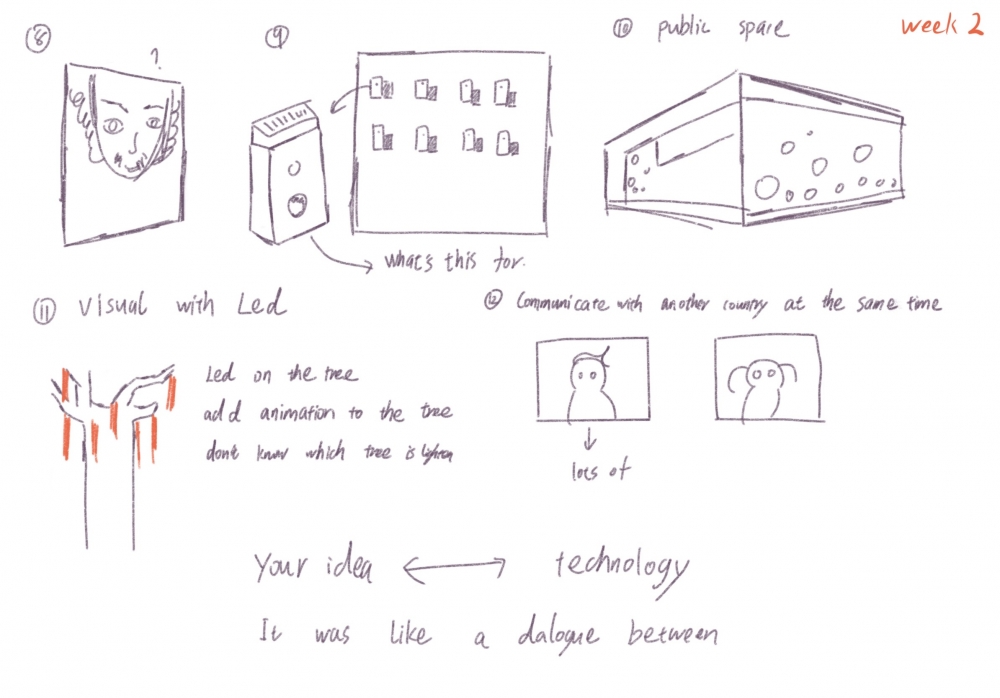 week 2
⑧
?
⑨
what's this for.
⑩ public spare
⑪ Visual with Led
Led on the tree
add animation to the tree
don't know which tree is
⑫ Communicate with another country at the same time
lots of
Your idea ⟷ technology
It was like a dalogue between